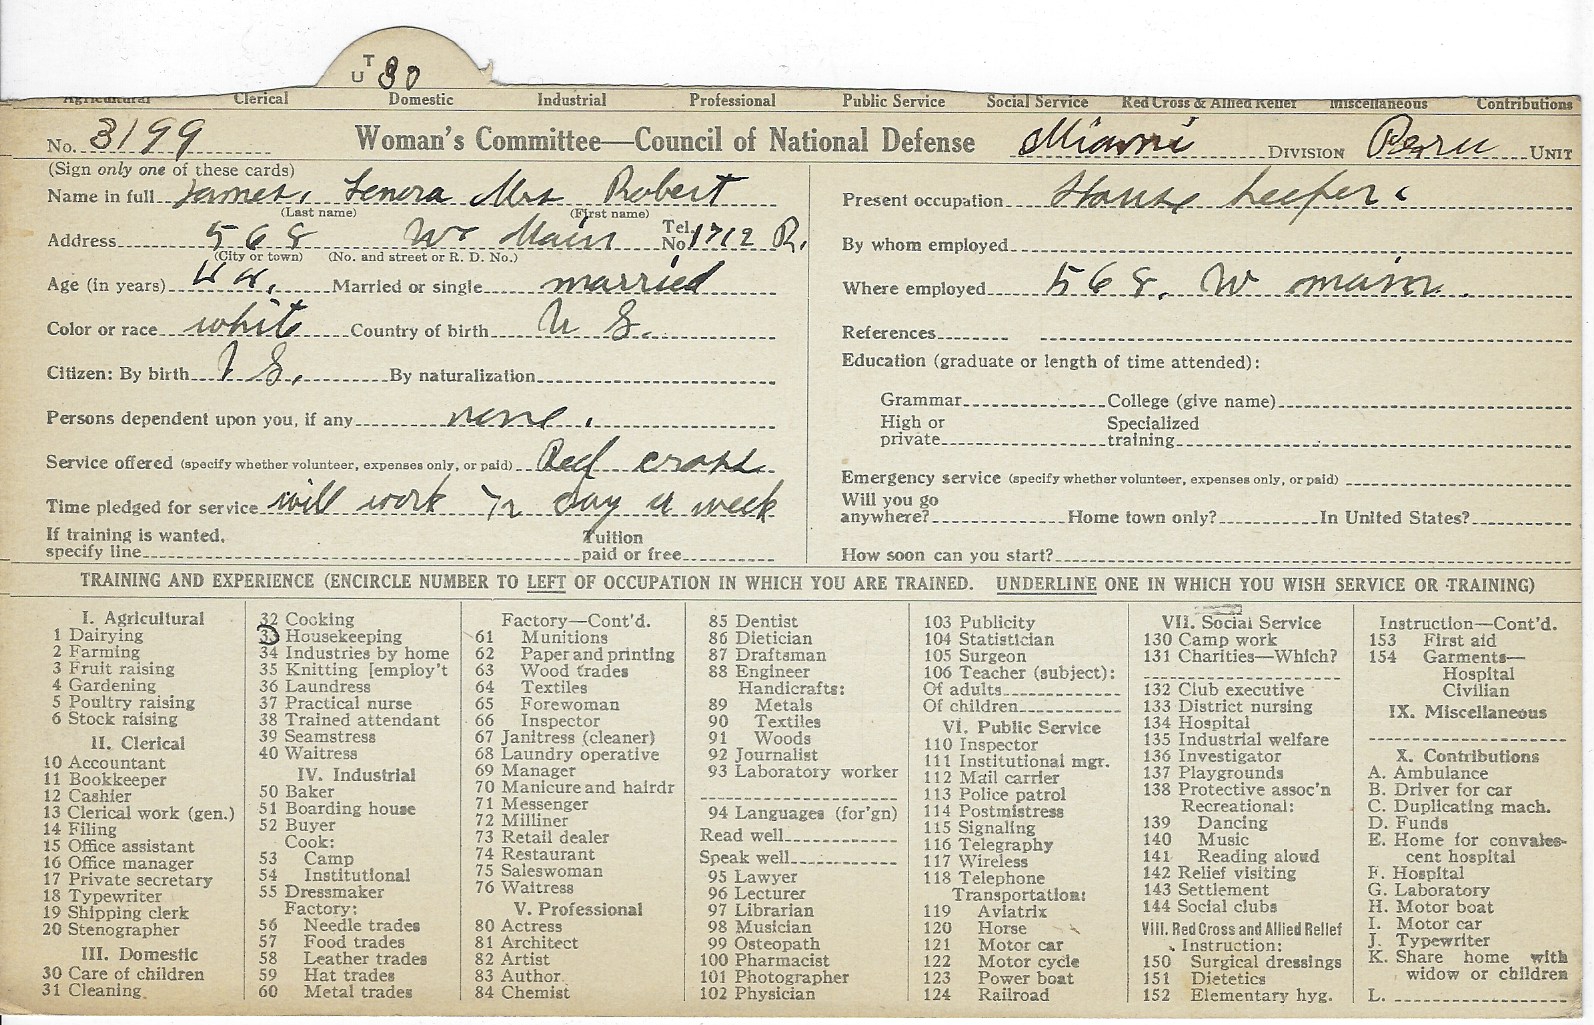 T
U 30
Agricultural Clerical Domestic Industrial Professional Public Service Social Service Red Cross & Allied Relief Miscellaneous Contributions
No. 3199 Woman's Committee—Council of National Defense Miami DIVISION Peru UNIT
(Sign only one of these cards)
Name in full James, Lenora Mrs Robert
(Last name) (First name)
Address 568 W. Main Tel. No 1712 R.
(City or town) (No. and street or R. D. No.)
Age (in years) Married or single married
Color or race white Country of birth U S.
Citizen: By birth S. By naturalization
Persons dependent upon you, if any none.
Service offered (specify whether volunteer, expenses only, or paid) Red cross
Time pledged for service will work 1/2 day a week
If training is wanted, specify line Tuition paid or free
Present occupation House keeper.
By whom employed
Where employed 568. W main.
References
Education (graduate or length of time attended):
Grammar College (give name)
High or private Specialized training
Emergency service (specify whether volunteer, expenses only, or paid)
Will you go anywhere? Home town only? In United States?
How soon can you start?
TRAINING AND EXPERIENCE (ENCIRCLE NUMBER TO LEFT OF OCCUPATION IN WHICH YOU ARE TRAINED. UNDERLINE ONE IN WHICH YOU WISH SERVICE OR TRAINING)
I. Agricultural
1 Dairying
2 Farming
3 Fruit raising
4 Gardening
5 Poultry raising
6 Stock raising
II. Clerical
10 Accountant
11 Bookkeeper
12 Cashier
13 Clerical work (gen.)
14 Filing
15 Office assistant
16 Office manager
17 Private secretary
18 Typewriter
19 Shipping clerk
20 Stenographer
III. Domestic
30 Care of children
31 Cleaning
32 Cooking
33 Housekeeping
34 Industries by home
35 Knitting [employ't
36 Laundress
37 Practical nurse
38 Trained attendant
39 Seamstress
40 Waitress
IV. Industrial
50 Baker
51 Boarding house
52 Buyer
Cook:
53 Camp
54 Institutional
55 Dressmaker
Factory:
56 Needle trades
57 Food trades
58 Leather trades
59 Hat trades
60 Metal trades
Factory—Cont'd.
61 Munitions
62 Paper and printing
63 Wood trades
64 Textiles
65 Forewoman
66 Inspector
67 Janitress (cleaner)
68 Laundry operative
69 Manager
70 Manicure and hairdr
71 Messenger
72 Milliner
73 Retail dealer
74 Restaurant
75 Saleswoman
76 Waitress
V. Professional
80 Actress
81 Architect
82 Artist
83 Author
84 Chemist
85 Dentist
86 Dietician
87 Draftsman
88 Engineer
Handicrafts:
89 Metals
90 Textiles
91 Woods
92 Journalist
93 Laboratory worker
94 Languages (for'gn)
Read well
Speak well
95 Lawyer
96 Lecturer
97 Librarian
98 Musician
99 Osteopath
100 Pharmacist
101 Photographer
102 Physician
103 Publicity
104 Statistician
105 Surgeon
106 Teacher (subject):
Of adults
Of children
VI. Public Service
110 Inspector
111 Institutional mgr.
112 Mail carrier
113 Police patrol
114 Postmistress
115 Signaling
116 Telegraphy
117 Wireless
118 Telephone
Transportation:
119 Aviatrix
120 Horse
121 Motor car
122 Motor cycle
123 Power boat
124 Railroad
VII. Social Service
130 Camp work
131 Charities—Which?
132 Club executive
133 District nursing
134 Hospital
135 Industrial welfare
136 Investigator
137 Playgrounds
138 Protective assoc'n
Recreational:
139 Dancing
140 Music
141 Reading aloud
142 Relief visiting
143 Settlement
144 Social clubs
VIII. Red Cross and Allied Relief
Instruction:
150 Surgical dressings
151 Dietetics
152 Elementary hyg.
Instruction—Cont'd.
153 First aid
154 Garments—
Hospital
Civilian
IX. Miscellaneous
X. Contributions
A. Ambulance
B. Driver for car
C. Duplicating mach.
D. Funds
E. Home for convales-
cent hospital
F. Hospital
G. Laboratory
H. Motor boat
I. Motor car
J. Typewriter
K. Share home with
widow or children
L.